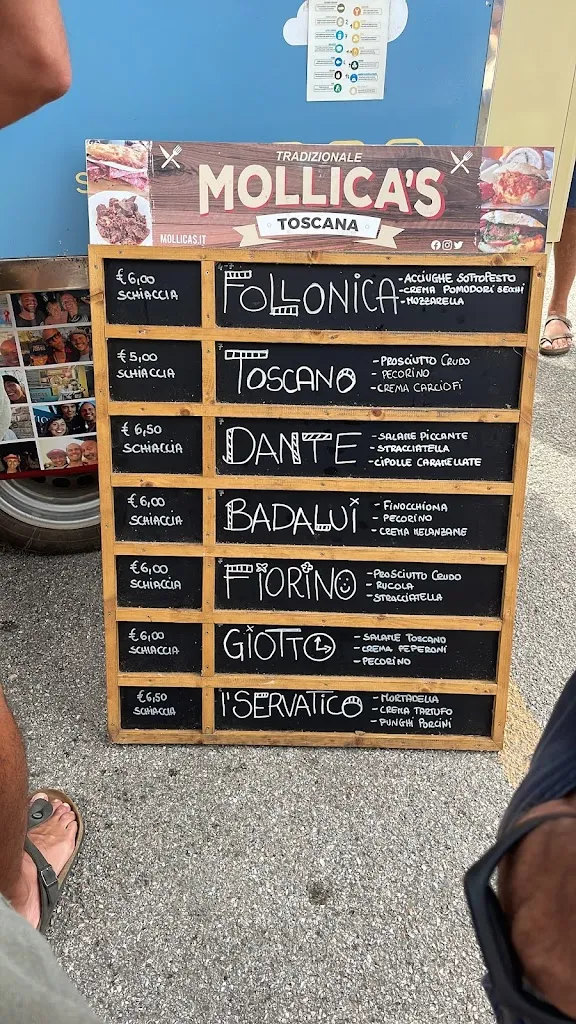 TRADIZIONALE
MOLLICA'S
TOSCANA
MOLLICAS.IT
€ 6,00
SCHIACCIA
FOLLONICA
-ACCIUGHE SOTTOPESTO
-CREMA POMODORI SECCHI
-MOZZARELLA
€ 5,00
SCHIACCIA
TOSCANO
-PROSCIUTTO CRUDO
- PECORINO
- CREMA CARCIOFI
€ 6,50
SCHIACCIA
DANTE
-SALAME PICCANTE
-STRACCIATELLA
-CIPOLLE CARAMELLATE
€ 6,00
SCHIACCIA
BADALUI
- FINOCCHIONA
- PECORINO
- CREMA MELANZANE
€ 6,00
SCHIACCIA
FIORINO
-PROSCIUTTO CRUDO
- RUCOLA
- STRACCIATELLA
€ 6,00
SCHIACCIA
GIOTTO
- SALAME TOSCANO
- CREMA PEPERONI
- PECORINO
€ 6,50
SCHIACCIA
I'SERVATICO
- MORTADELLA
- CREMA TARTUFO
- FUNGHI PORCINI